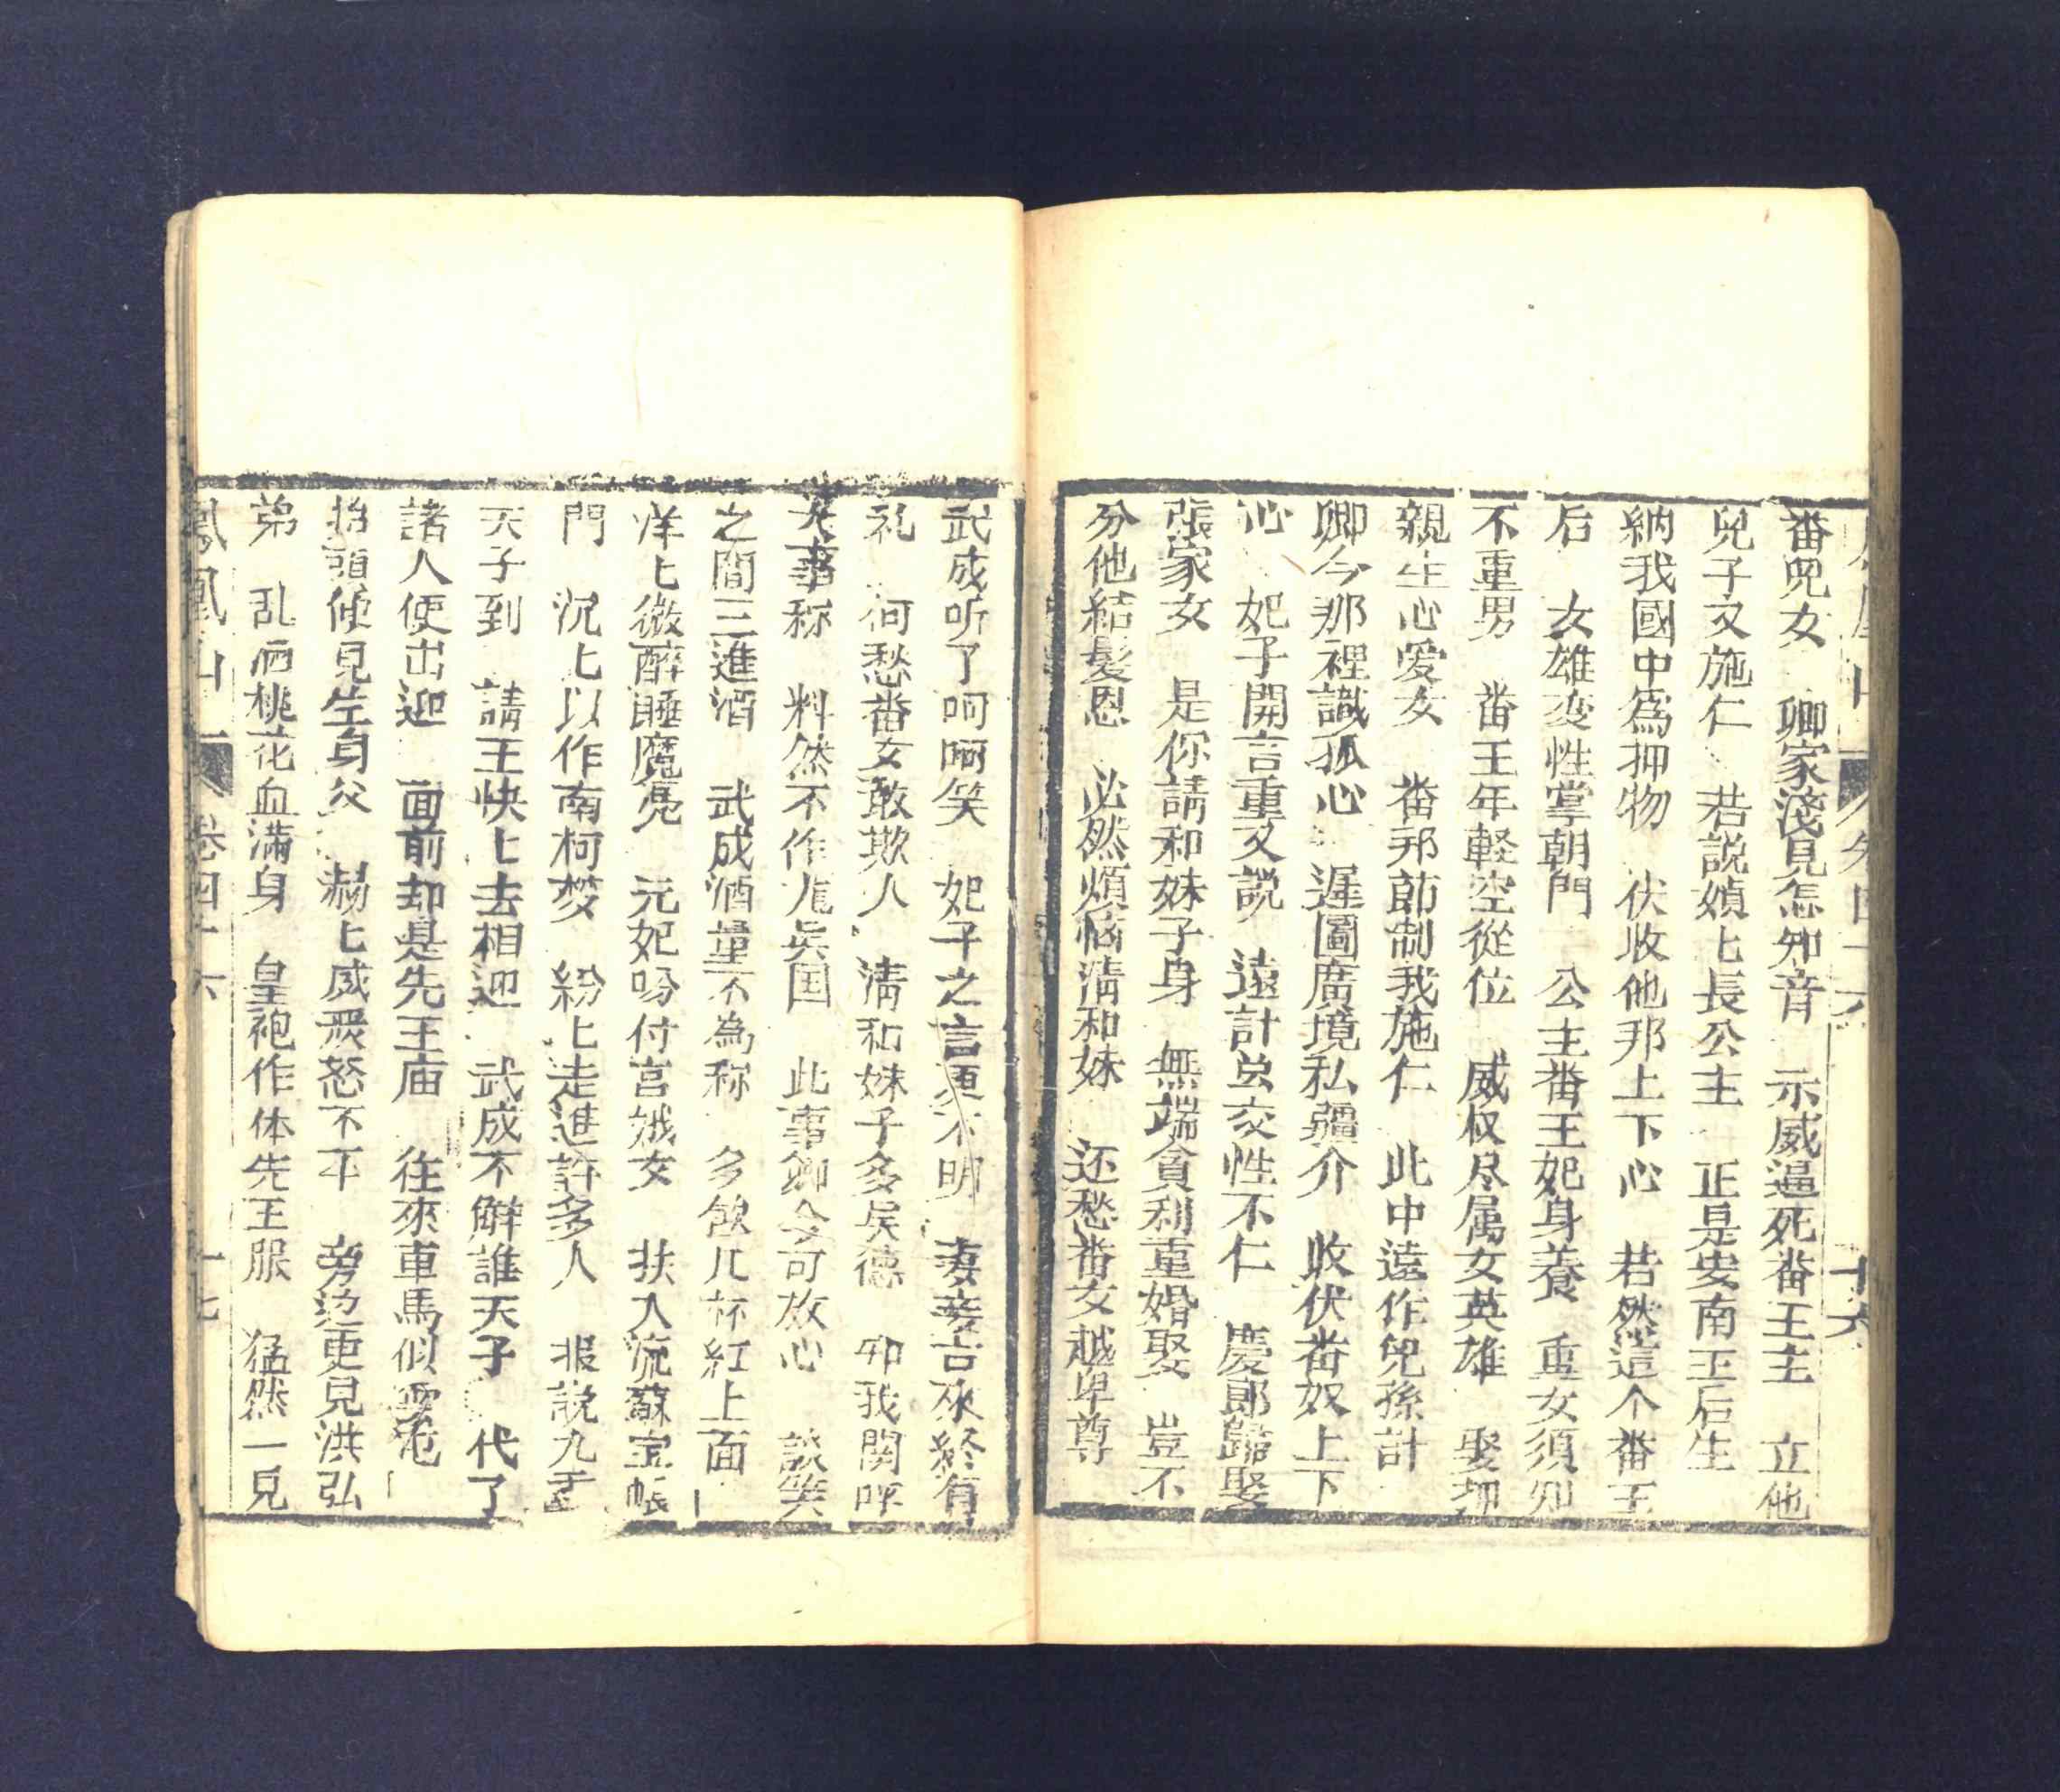 番兒女 卿家淺見怎知音 示威逼死番王主 立他
兒子又施仁 若説媜匕長公主 正是安南王后生
納我國中爲押物 伏收他邦上下心 若然這个番王
后 女雄変性掌朝門 公主番王妃身養 重女須知
不重男 番王年軽空從位 威权尽属女英雄 娶
親生心愛女 番邦節制我施仁 此中遠作兒孫計
卿今那裡識孤心 遲圖廣境私疆介 收伏番奴上下
心 妃子開言重又説 遠計交性不仁 慶郎歸娶
張家女 是你請和妹子身 無端貪利重婚娶 豈不
分他結髮恩 必然煩惱淸和妹 还愁番女越卑尊
十六
武成听了呵呵笑 妃子之言不明 妻妾古來終有
礼 何愁番女敢欺人 淸和妹子多矣德 卯我関呼
大事称 料然不作吳国 此事卿今可放心 談笑
之間三進酒 武成酒量不為称 多飲几杯紅上面
洋匕微醉睡魔亮 元妃吩付宫娥女 扶入流蘇宝帳
門 沉匕以作南柯梦 紛匕走進許多人 报説九
天子到 請王快匕去相迎 武成不解誰天子 代了
諸人便出迎 面前却是先王庙 往來車馬似雲屯
抬頭便見生身父 赫匕威灵怒不平 旁边更見洪弘
弟 乱洒桃花血滿身 皇袍作体先王服 猛然一見
鳳凰山 卷四十六 十七